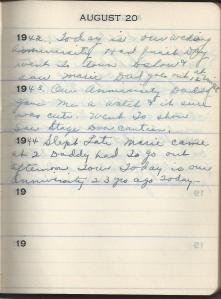 AUGUST 20
1942 Today is our Weding
Anniversity Had first Day
went to town Before
saw Marie Dad goes out at
1943 Our Anniversity Daddy
gave me a watch & it sure
was cute. Went To show
see Stage Door canteen.
1944 Slept Late Marie came
at 2 Daddy had To go out
afternoon Tour Today is our
Anniversity 23 yrs ago Today.
19
19